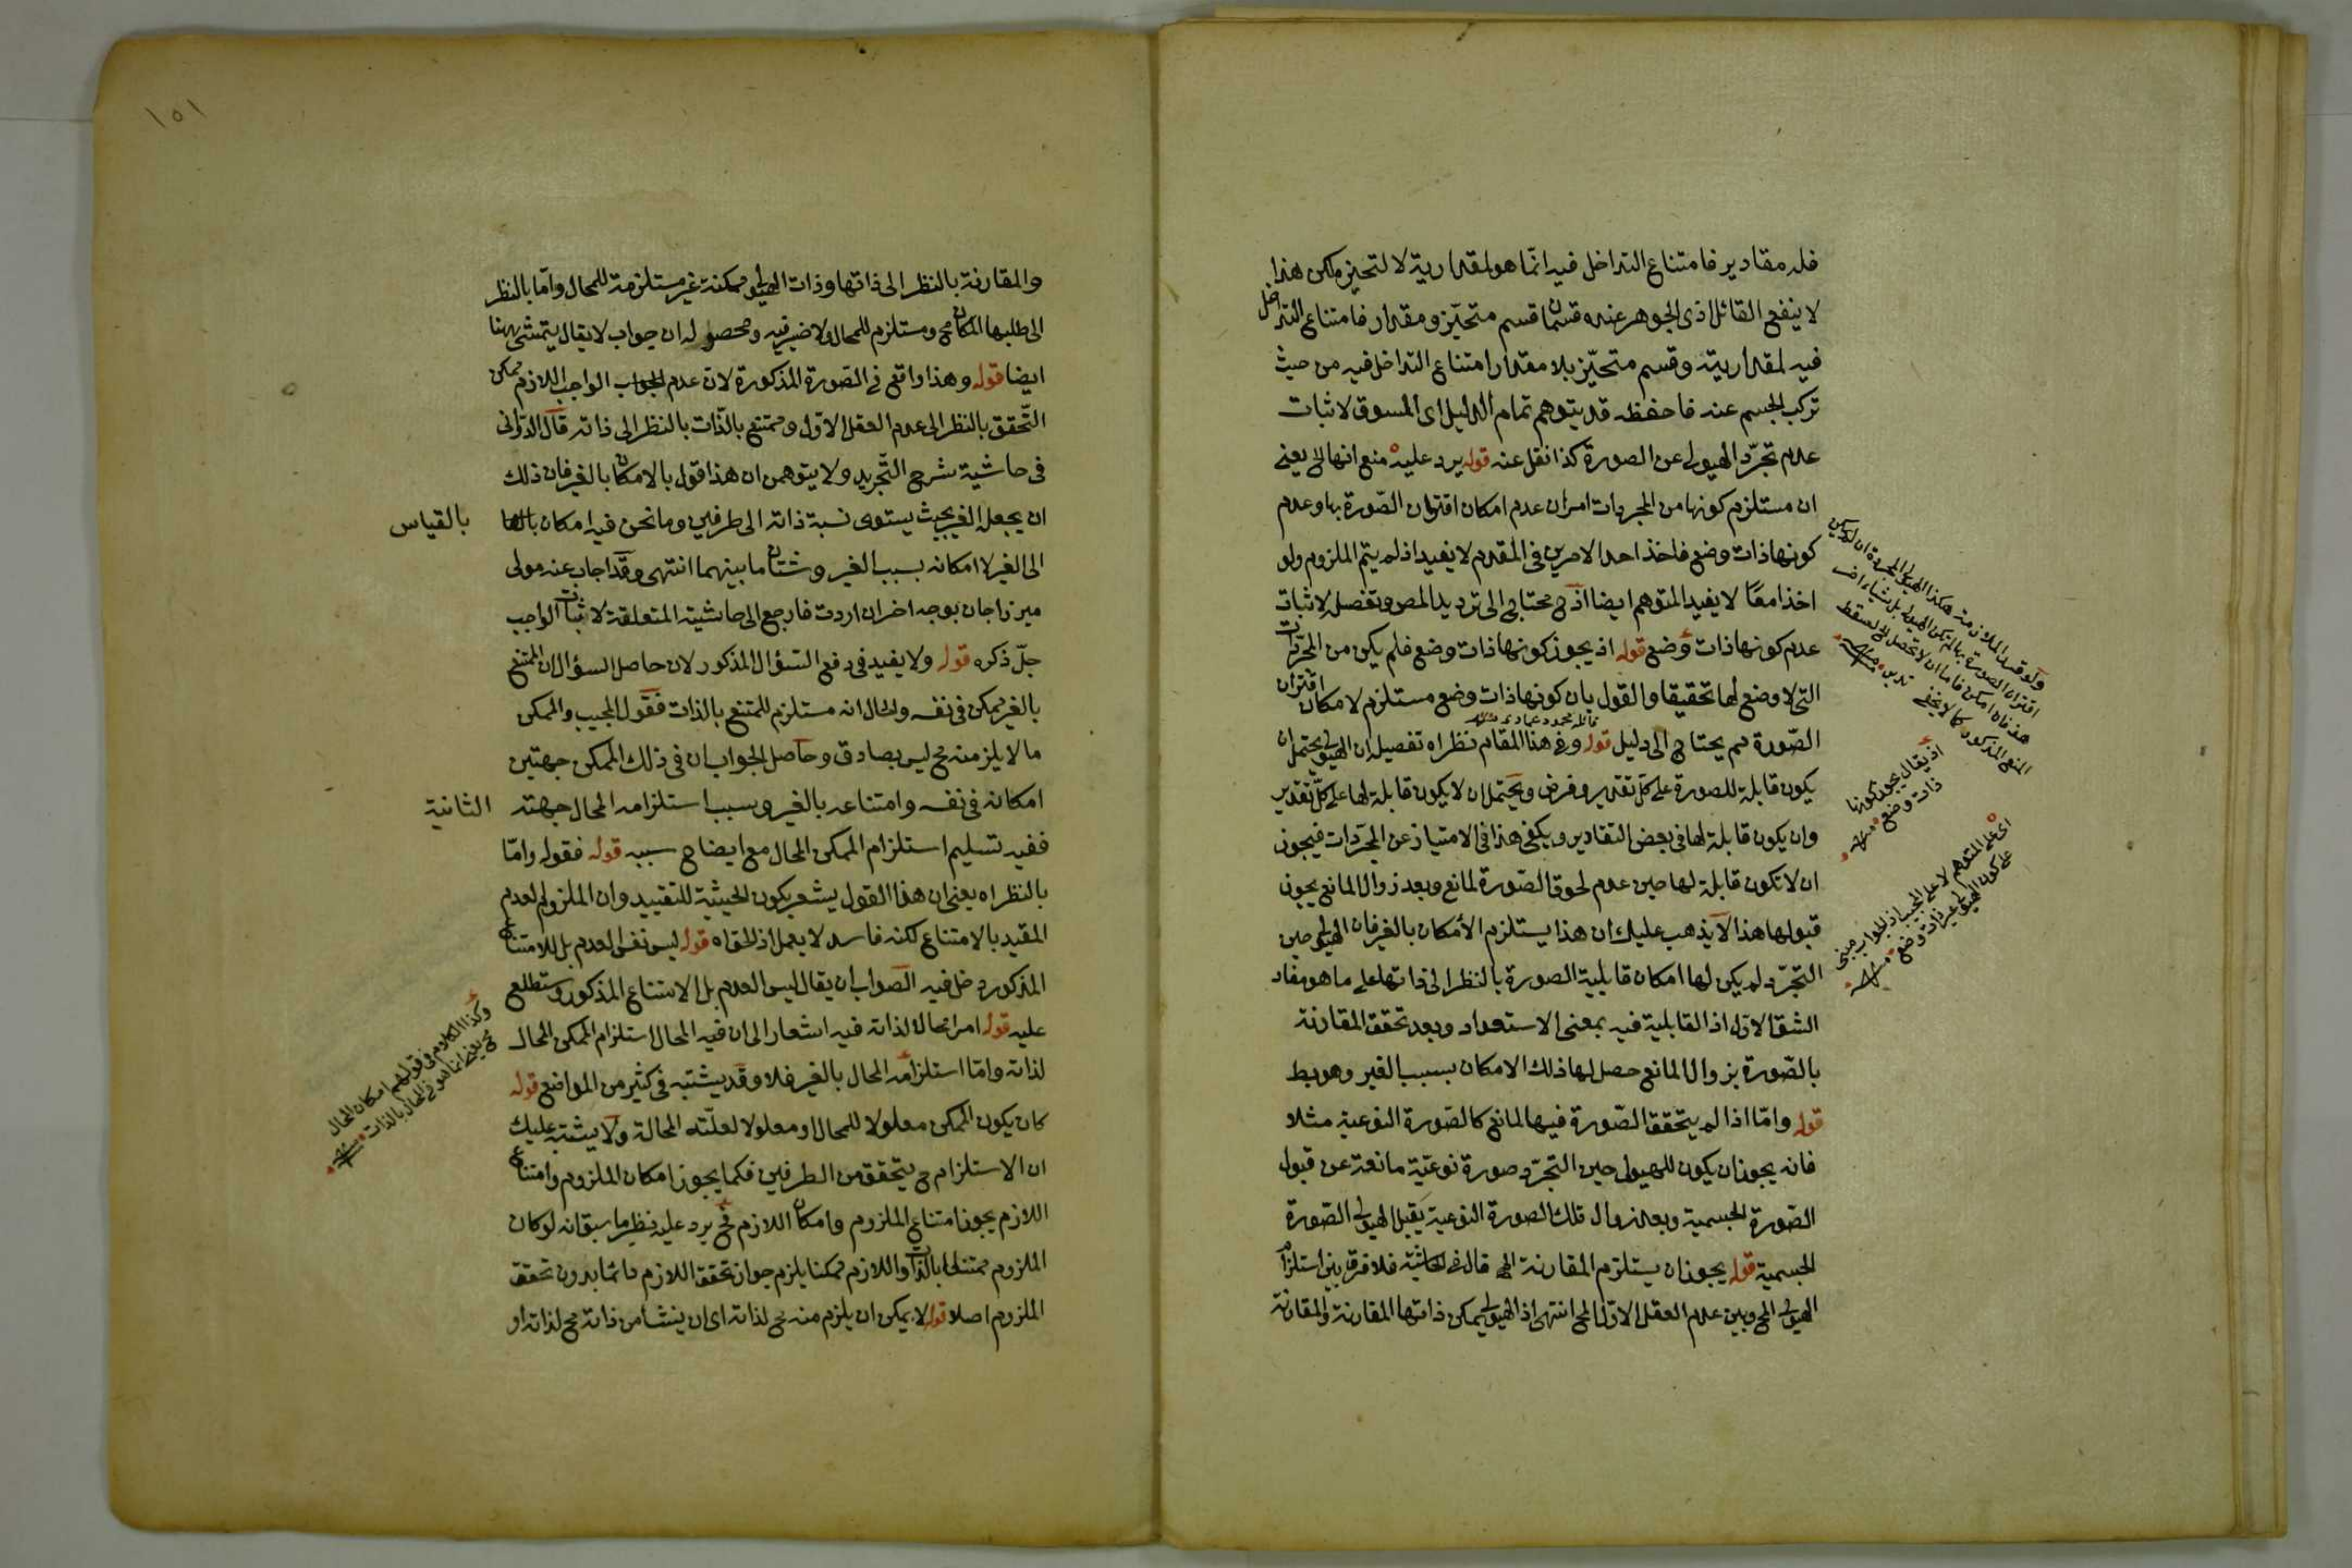 فله مقادير فامتناع التداخل فيه انّما هو لمقدارية لا لتحيّز ملكن هذا
لا ينفع القائل اذ الجوهر عنده قسمان قسم متحيّز ومقدار فامتناع التداخل
فيه لمقداريته وقسم متحيّز بلا مقدار امتناع التداخل فيه من حيث
تركب الجسم عنه فاحفظه قد يتوهم تمام الدليل اى المسوق لاثبات
عدم تجرّد الهيولى عن الصورة كذا نقل عنه قوله يرد عليه منع انها الخ يعنى
ان مستلزم كونها من المجردات امران عدم امكان اقتران الصّورة بها وعدم
كونها ذات وضع فاخذ احد الامرين فى المقدم لا يفيد اذ لم يتم الملزوم ولو
اخذا معًا لا يفيد المتوهم ايضا اذ ح يحتاج الى ترديد المص وتفصيله لاثبات
عدم كونها ذات وضع قوله اذ يجوز كونها ذات وضع فلم يكن من المجرّدات
التى لا وضع لها تحقيقا والقول بان كونها ذات وضع مستلزم لامكان اقتران
الصّورة مم يحتاج الى دليل قوله وفى هذا المقام نظر اه تفصيله ان الهيولى يحتمل ان
يكون قابلة للصورة على كلّ تقدير وفرض ويحتمل ان لا يكون قابلة لها على كلّ تقدير
وان يكون قابلة لها فى بعض التقادير ويكفى هذا فى الامتياز عن المجرّدات فيجوز
ان لا تكون قابلة لها حين عدم لحوق الصّورة لمانع وبعد زوال المانع يجوز
قبولها هذا لا يذهب عليك ان هذا يستلزم الأمكان بالغير فان الهيولى حين
التجرّد لم يكن لها امكان قابلية الصورة بالنظر الى ذاتها على ما هو مفاد
الشق الاول اذ القابلية فيه بمعنى الاستعداد وبعد تحقق المقارنة
بالصّورة بزوال المانع حصل لها ذلك الامكان بسبب الغير وهو بط
قوله وامّا اذا لم يتحقق الصّورة فيها لمانع كالصّورة النوعية مثلا
فانه يجوز ان يكون للهيولى حين التجرّد صورة نوعيّة مانعة عن قبول
الصّورة الجسمية وبعد زوال تلك الصورة النوعية يقبل الهيولى الصّورة
الجسمية قوله يجوز ان يستلزم المقارنة الخ قال فى الحاشية فلا فرق بين استلزام
الهيولى المح وبين عدم العقل الاوّل المح انتهى اذ الهيولى يمكن ذاتها المقارنة والمقارنة
قائله محمود عمادى
اذ يقال يجوز كونها
ذات وضع منه
اى على المتوهم لا على المجيب اذ الجواب مبنى
على كون الهيولى غير ذات وضع منه
١٥١
والمقارنة بالنظر الى ذاتها وذات الهيولى ممكنة غير مستلزمة للمحال وامّا بالنظر
الى طلبها المكان مح ومستلزم للمحال ولا ضير فيه ومحصوله ان جواب لا يقال يتمشى ههنا
ايضا قوله وهذا واقع فى الصّورة المذكورة لان عدم الواجب اللازم ممكن
التّحقق بالنظر الى عدم العقل الاوّل وممتنع بالذّات بالنظر الى ذاته قال الدّوانى
فى حاشية شرح التّجريد ولا يتوهمن ان هذا قول بالامكان بالغير فان ذلك
ان يجعل الغير بحيث يستوى نسبة ذاته الى طرفين وما نحن فيه امكان بالقياس
الى الغير لا امكانه بسبب الغير وشتان ما بينهما انتهى وقد اجاب عنه مولى
ميرزاجان بوجه اخر ان اردت فارجع الى حاشيته المتعلقة لاثبات الواجب
جلّ ذكره قوله ولا يفيد فى دفع السّؤال المذكور لان حاصل السؤال ان الممتنع
بالغير ممكن فى نفسه والحال انه مستلزم للممتنع بالذات فقول المجيب والممكن
ما لا يلزم منه مح ليس بصادق وحاصل الجواب ان فى ذلك الممكن جهتين
امكانه فى نفسه وامتناعه بالغير وسبب استلزامه المحال جهته الثانية
ففيه تسليم استلزام الممكن المحال مع ايضاح سببه قوله فقوله وامّا
بالنظر اه يعنى ان هذا القول يشعر بكون الحيثية للتقييد وان الملزوم العدم
المقيد بالامتناع لكنه فاسد لا يعمل اذ الحق اه قوله ليس نفس العدم بل للامتناع
المذكور دخل فيه الصواب ان يقال ليس العدم بل الامتناع المذكور وستطلع
عليه قوله امرا محالا لذاته فيه اشعار الى ان فيه المحال استلزام الممكن المحال
لذاته وامّا استلزامه المحال بالغير فلا وقد يشتبه فى كثير من المواضع قوله
كان يكون الممكن معلولا للمحال ومعلولا لعلّته المحالة ولا يشتبه عليك
ان الاستلزام ح يتحقق من الطرفين فكما يجوز امكان الملزوم وامتناع
اللازم يجوز امتناع الملزوم وامكان اللازم فح يرد عليه نظير ما سبق انه لو كان
الملزوم ممتنعا بالذات واللازم ممكنا يلزم جواز تحقق اللازم دائما بدون تحقق
الملزوم اصلا قوله لا يمكن ان يلزم منه مح لذاته اى ان ينشأ من ذاته مح لذاته او
وكذا الكلام فى قولهم امكان المحال
مح يعنى انما هو فى المحال بالذات منه